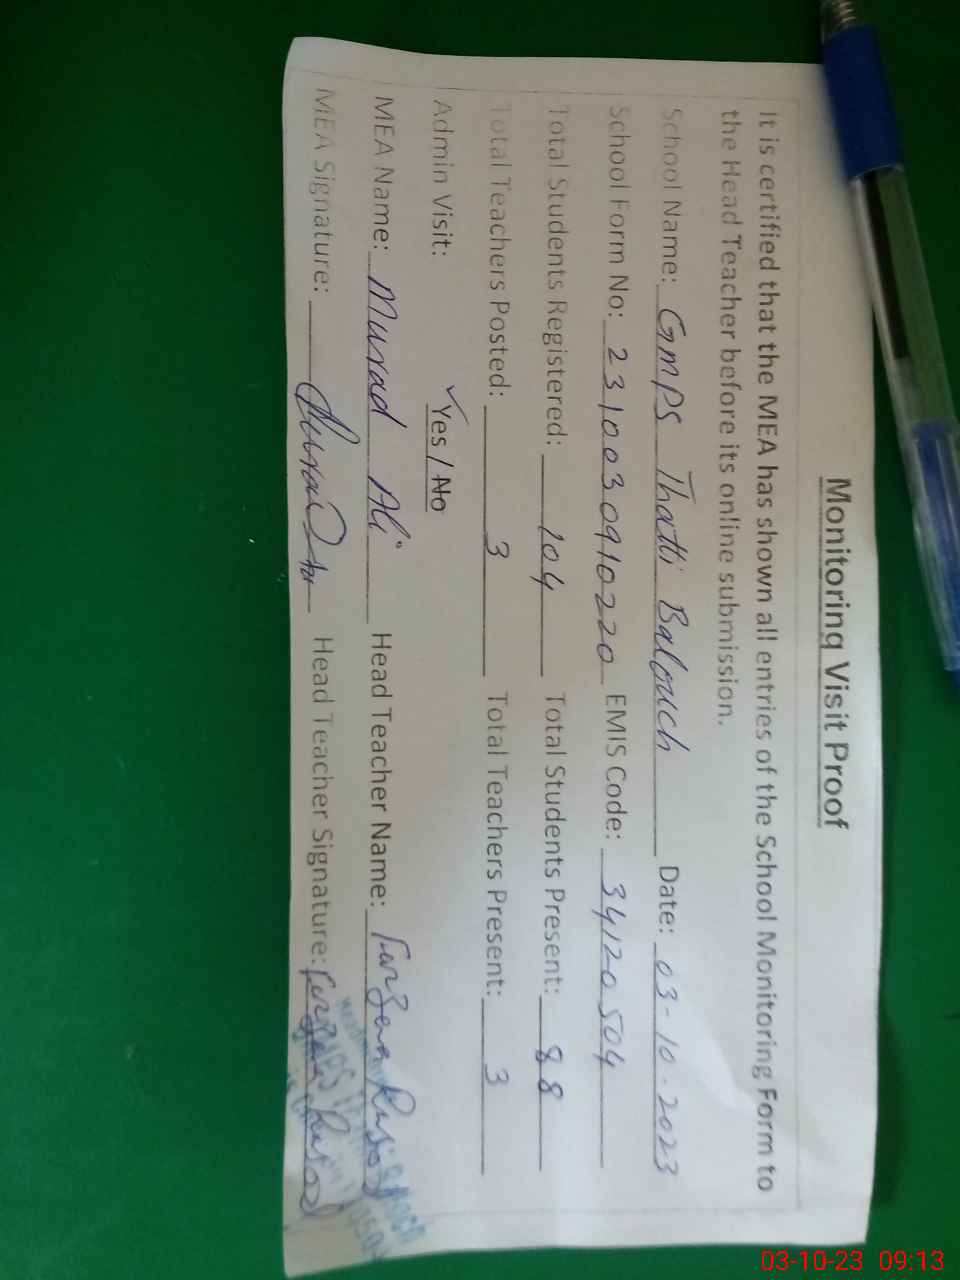 Monitoring Visit Proof
It is certified that the MEA has shown all entries of the School Monitoring Form to
the Head Teacher before its online submission.
School Name: GMPS Thatti Balouch Date: 03-10-2023
School Form No: 2310030910220 EMIS Code: 34120504
Total Students Registered: 104 Total Students Present: 88
Total Teachers Posted: 3 Total Teachers Present: 3
Admin Visit: ✓Yes / No
MEA Name: Murad Ali Head Teacher Name: Farzana
MEA Signature: Head Teacher Signature: Farzana
03-10-23 09:13